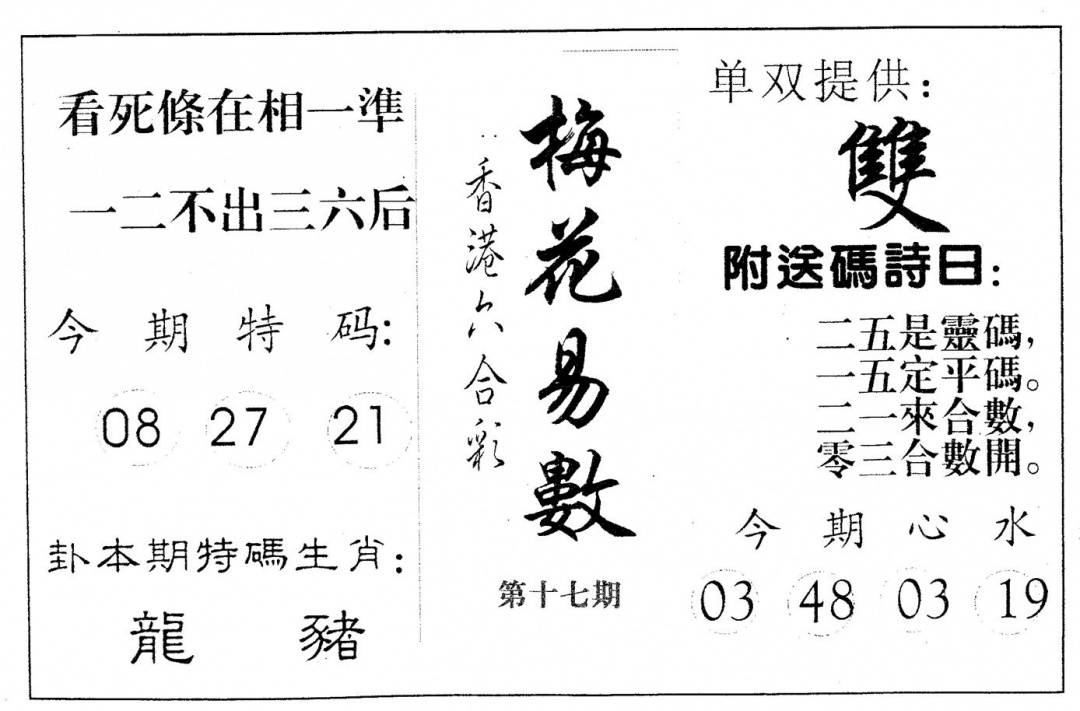 看死條在相一準
一二不出三六后
今期特码:
08 27 21
卦本期特碼生肖:
龍 豬
香港六合彩
梅花易數
第十七期
单双提供:
雙
附送碼詩曰:
二五是靈碼,
一五定平碼。
二一來合數,
零三合數開。
今期心水
03 48 03 19